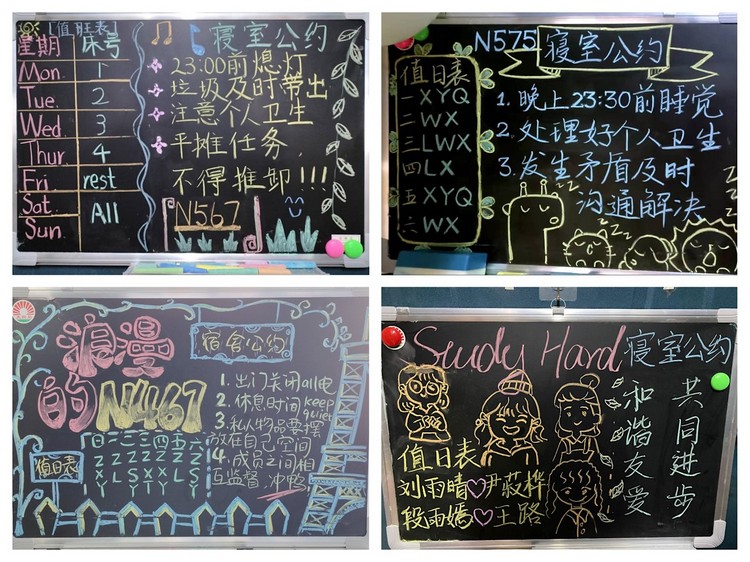 [值日表]
星期 床号
Mon. 1
Tue. 2
Wed. 3
Thur. 4
Fri. rest
Sat. All
Sun
寝室公约
23:00前熄灯
垃圾及时带出
注意个人卫生
平摊任务,
不得推卸!!!
N567
N575 寝室公约
值日表
一XYQ
二WX
三LWX
四LX
五XYQ
六WX
1. 晚上23:30前睡觉
2. 处理好个人卫生
3. 发生矛盾及时
沟通解决
浪漫
的N467
宿舍公约
1. 出门关闭all电
2. 休息时间keep
quiet
3. 私人物品要摆
放在自己空间
4. 成员之间相
互监督 冲鸭!
值日表
日一二三四五六
Z Z L S X L S
X Y Y T Y
Study Hard 寝室公约
值日表
刘雨晴♡尹莜桦
段雨嫣♡王路
和谐友爱
共同进步